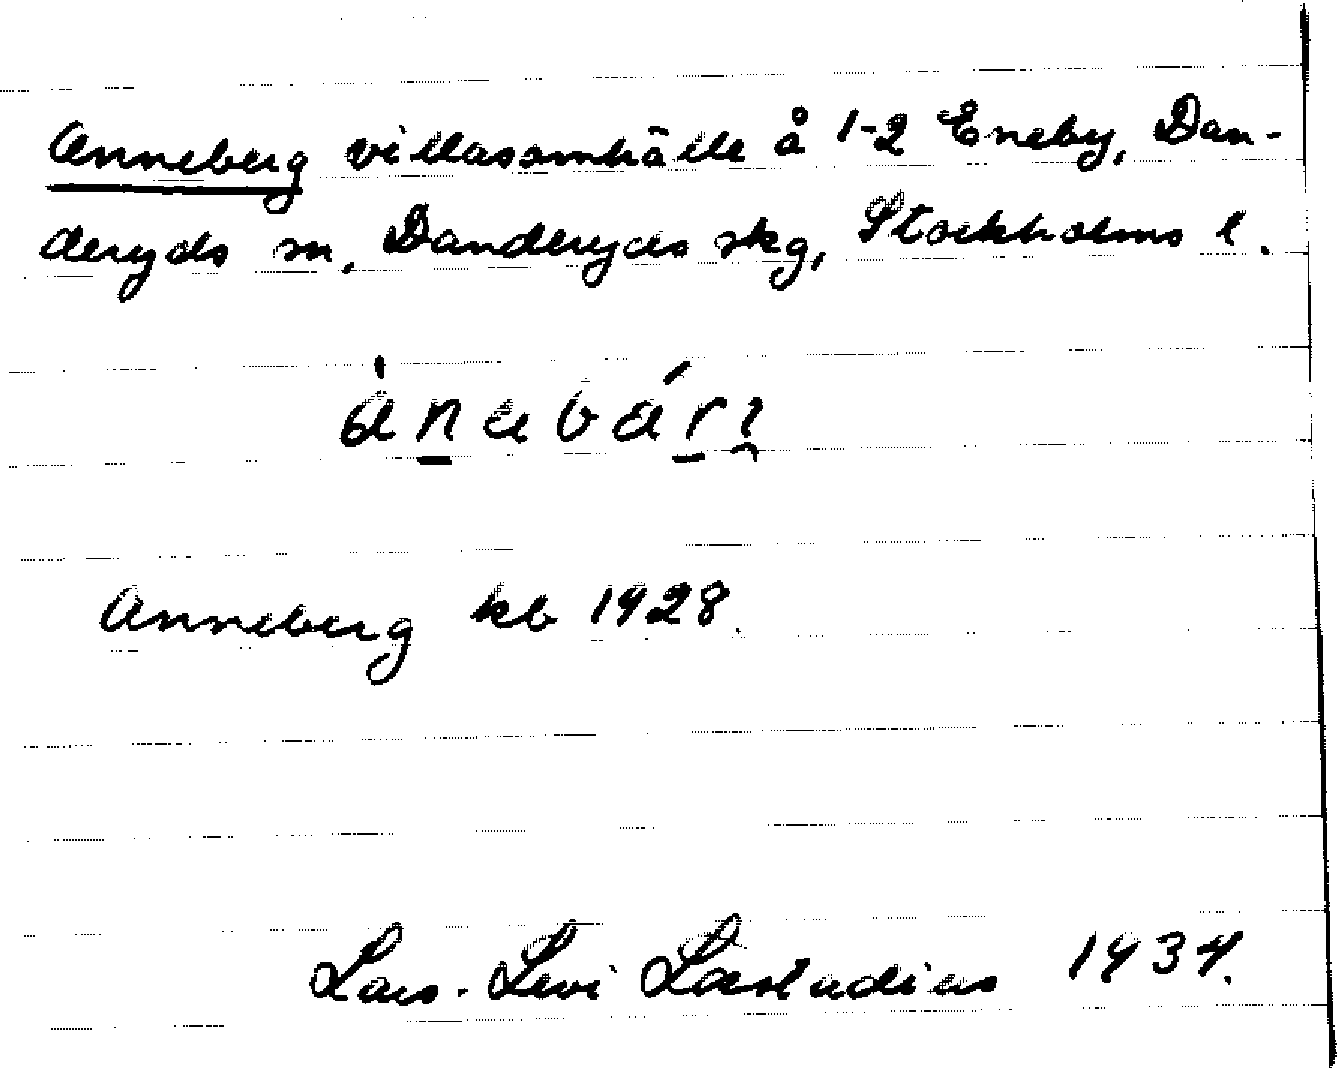 Anneberg villasamhälle å 1-2 Eneby, Dan-
deryds sn, Danderyds skg, Stockholms l.
ànabári
Anneberg kb 1928.
Lars-Levi Læstadius 1934.